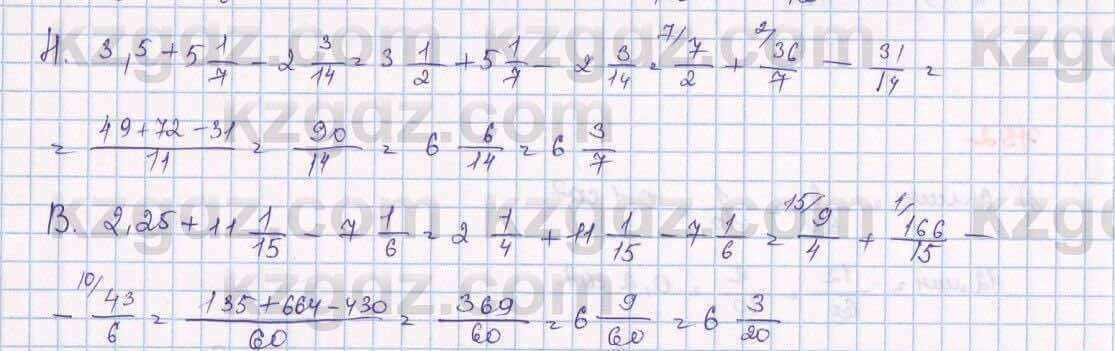 H. 3,5 + 5 1/7 - 2 3/14 = 3 1/2 + 5 1/7 - 2 3/14 = 7/ 7/2 + 2/ 36/7 - 31/14 =
= (49+72-31)/11 = 90/14 = 6 6/14 = 6 3/7
B. 2,25 + 11 1/15 - 7 1/6 = 2 1/4 + 11 1/15 - 7 1/6 = 15/ 9/4 + 1/ 166/15 -
- 10/ 43/6 = (135+664-430)/60 = 369/60 = 6 9/60 = 6 3/20
kzgdz.com